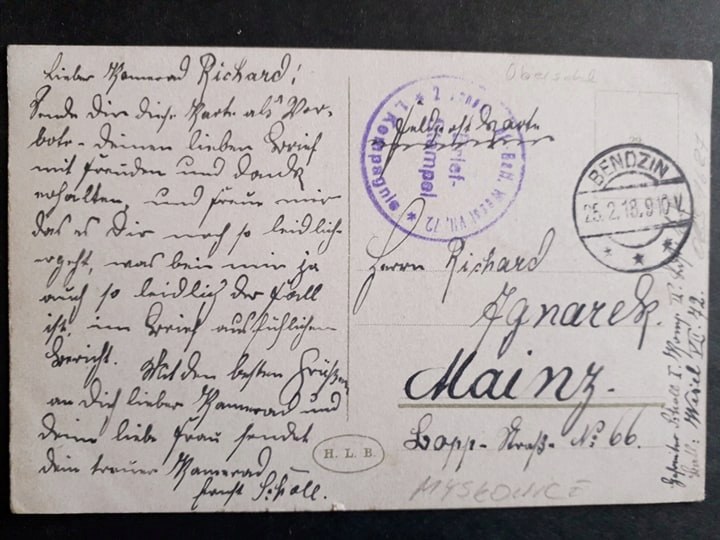 Lieber Kamerad Richard!
Sende Dir diese Karte als Vor-
bote - deinen lieben Brief
mit Freuden und Dank
erhalten, und freue mir
das es Dir noch so leidlich
ergeht, was bein mir ja
auch so leidlich der Fall
ist, im Brief ausführlichen
Bericht. Mit den besten Grüßen
an Dich lieber Kamerad und
deine liebe Frau sendet
dein treuer Kamerad
Ernst Scholl.
H. L. B.
Feldpost Karte
Brief-
Stempel
* 1. Kompagnie *
Batl. Wesel VII. 72
BENDZIN
25.2.18.9-10V
* * *
Herrn Richard
Ignarek.
Mainz.
Bopp-Straß-No 66.
Gefreiter Scholl I. Komp.
Batl: Wesel VII. 72.
MYSLOWICE